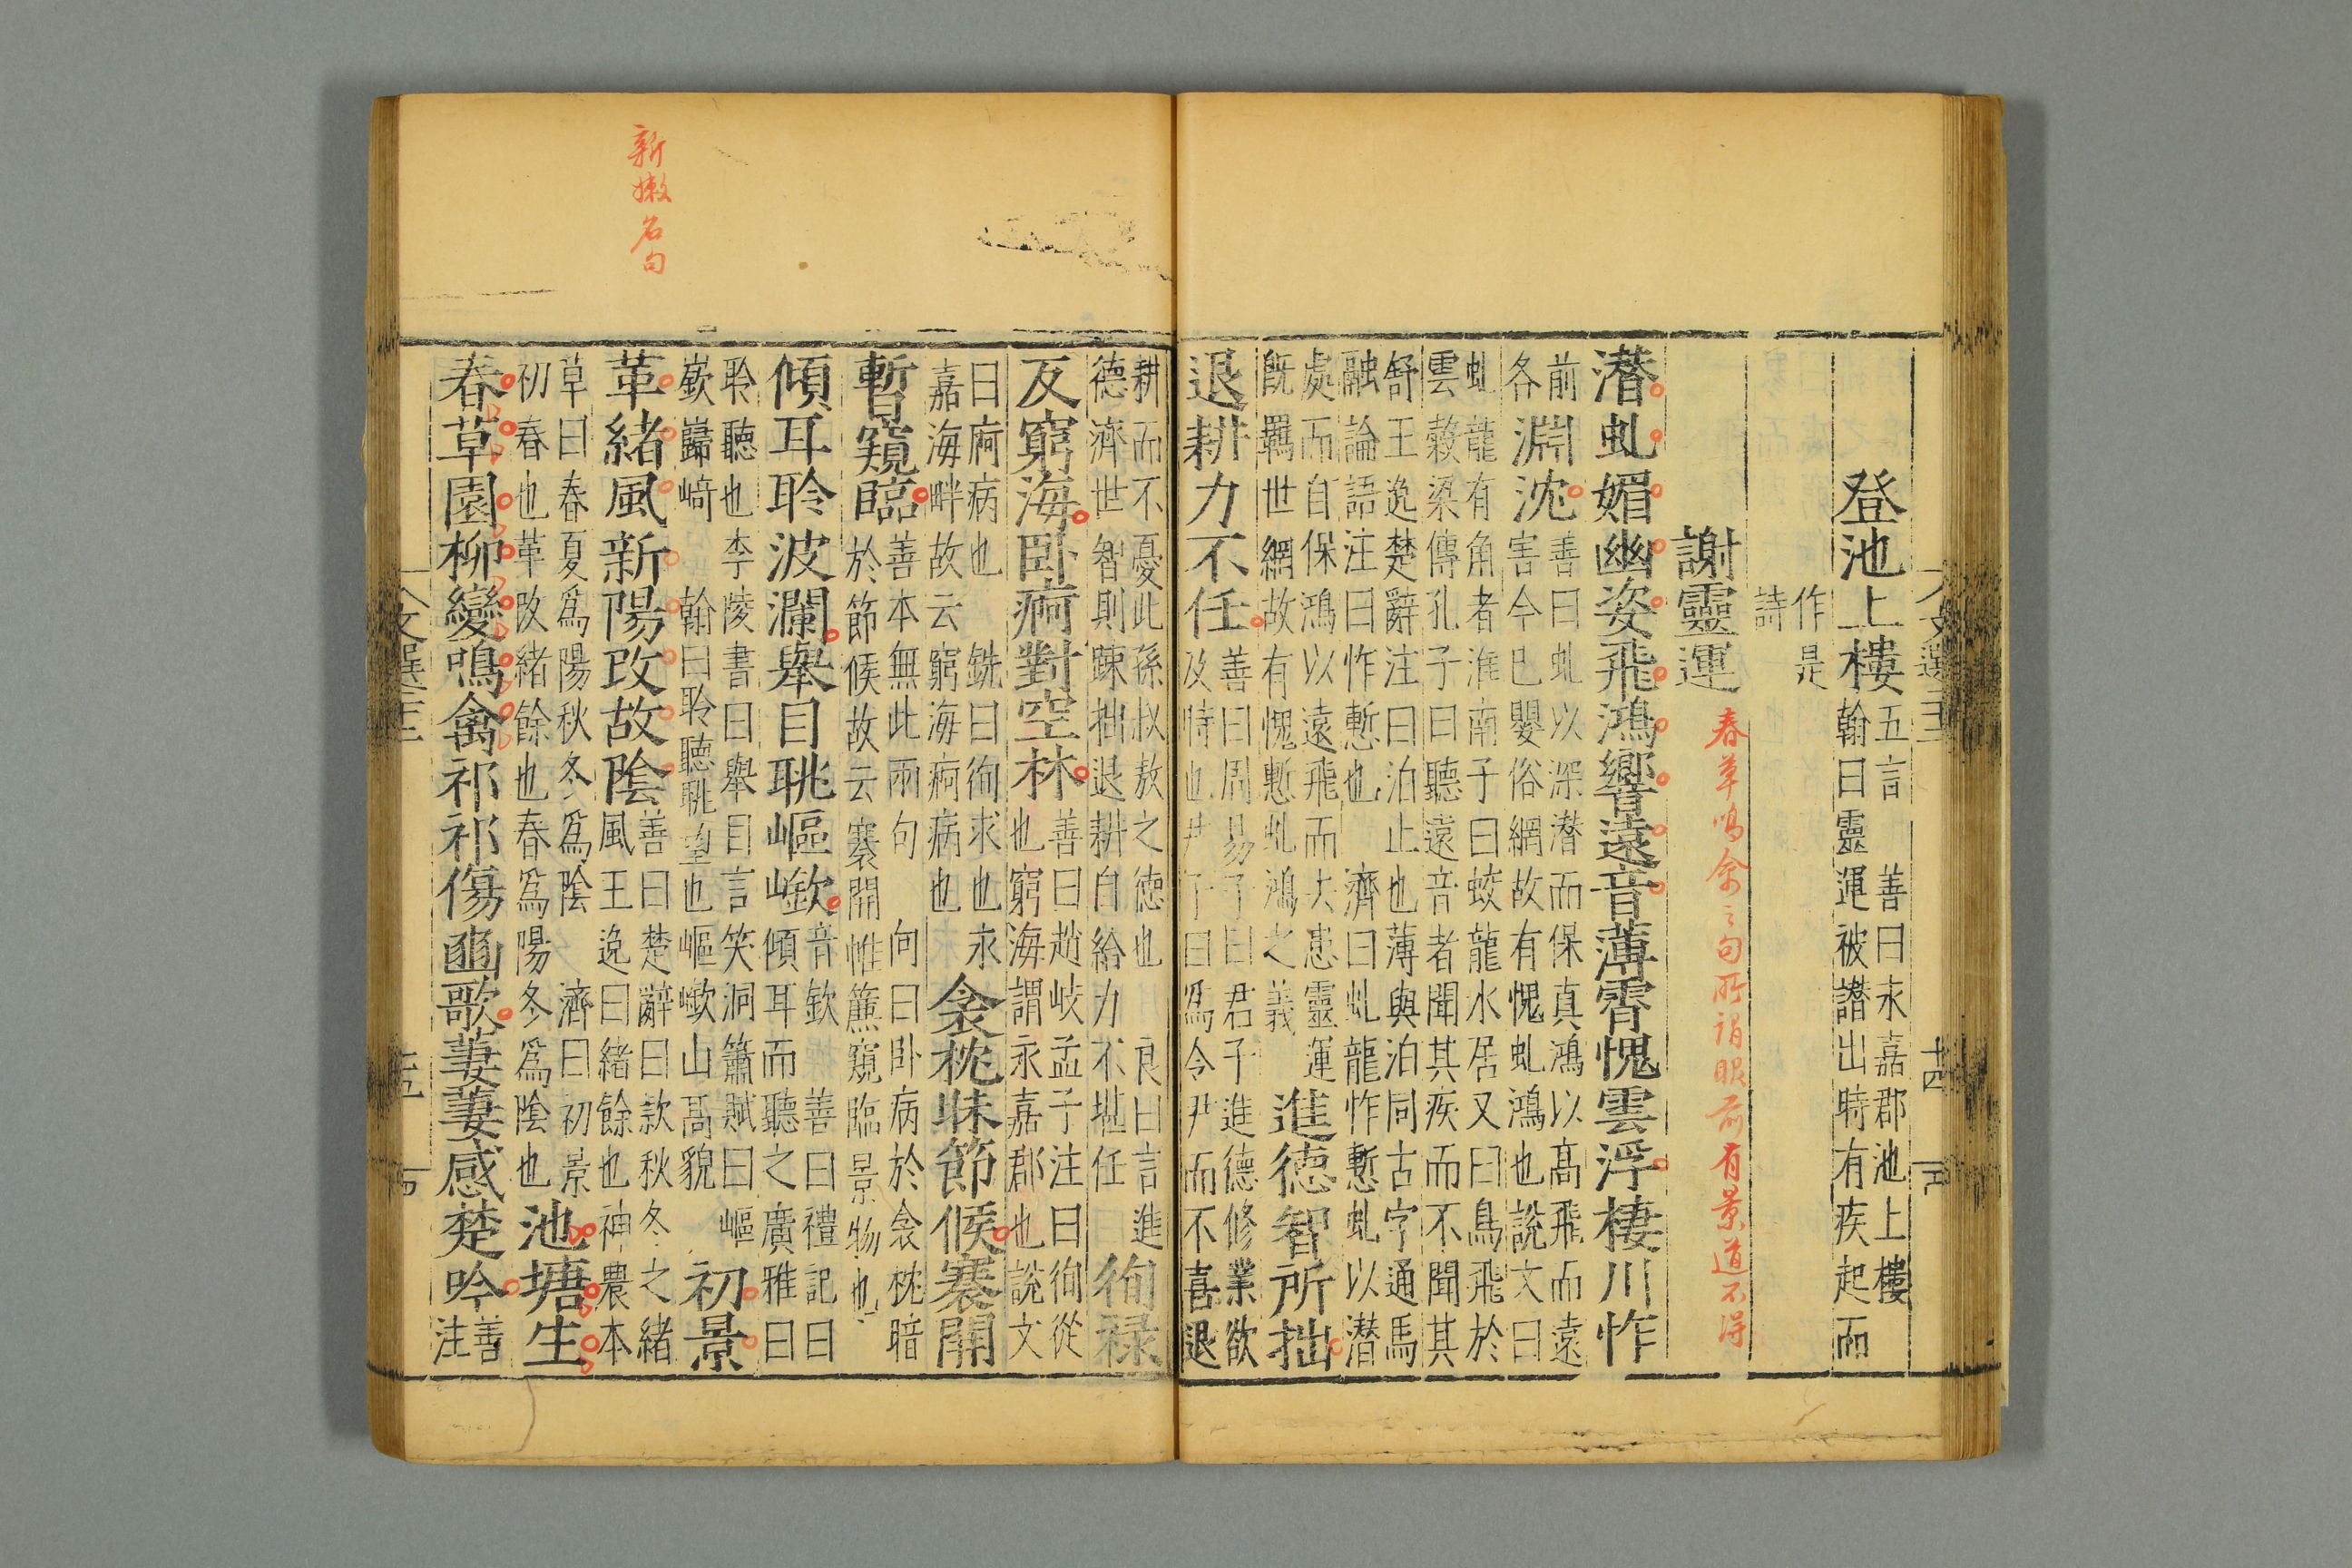 登池上樓
五言　善曰永嘉郡池上樓
翰曰靈運被譖出時有疾起而
作是
詩
謝靈運
春草鳴禽之句所謂眼前有景道不得
潛虬媚幽姿飛鴻響遠音薄霄愧雲浮棲川怍
前
各
淵沈
善曰虬以深潛而保真鴻以高飛而遠
害今已嬰俗網故有愧虬鴻也說文曰
虬龍有角者淮南子曰蛟龍水居又曰鳥飛於
雲穀梁傳孔子曰聽遠音者聞其疾而不聞其
舒王逸楚辭注曰泊止也薄與泊同古字通馬
融論語注曰怍慙也　濟曰虬龍怍慙虬以潛
處而自保鴻以遠飛而去患靈運
既羈世網故有愧慙虬鴻之義
進德智所拙
退耕力不任
善曰周易子曰君子進德修業欲
及時也尸子曰爲令尹而不喜退
耕而不憂此孫叔敖之德也　良曰言進
德濟世智則踈拙退耕自給力不堪任
徇祿
反窮海卧痾對空林
善曰趙岐孟子注曰徇從
也窮海謂永嘉郡也說文
曰痾病也　銑曰徇求也永
嘉海畔故云窮海痾病也
衾枕昧節候褰開
暫窺臨
善本無此兩句　向曰卧病於衾枕暗
於節候故云褰開帷簾窺臨景物也
傾耳聆波瀾舉目眺嶇嶔
音欽　善曰禮記曰
傾耳而聽之廣雅曰
聆聽也李陵書曰舉目言笑洞簫賦曰嶇
嶔巋崎　翰曰聆聽眺望也嶇嶔山高貌
初景
新嫩名句
革緒風新陽改故陰
善曰楚辭曰款秋冬之緒
風王逸曰緒餘也神農本
草曰春夏爲陽秋冬爲陰　濟曰初景
初春也革改緒餘也春爲陽冬爲陰也
池塘生
春草園柳變鳴禽祁祁傷豳歌萋萋感楚吟
善
注